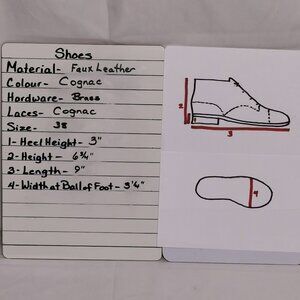 Shoes
Material- Faux Leather
Colour- Cognac
Hardware- Brass
Laces- Cognac
Size- 38
1-Heel Height- 3"
2-Height- 6¾"
3-Length- 9"
4-Width at Ball of Foot- 3¼"
2
1
3
4